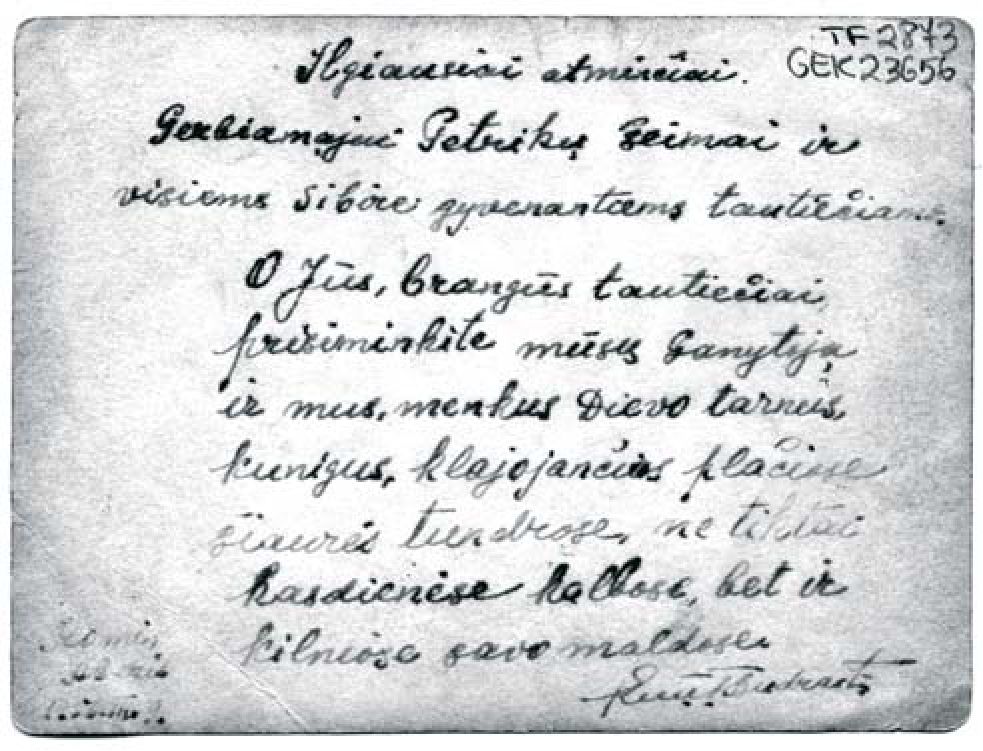 TF 2873
GEK 23656
Ilgiausiai atminčiai.
Gerbiamajai Petrikų šeimai ir
visiems Sibire gyvenantems tautiečiams.
O Jūs, brangūs tautiečiai,
prisiminkite mūsų Ganytoją
ir mus, menkus Dievo tarnus,
kunigus, klajojančius plačiose
šiaurės tundrose, ne tiktai
kasdienėse kalbose, bet ir
kilniose savo maldose.
Kun.